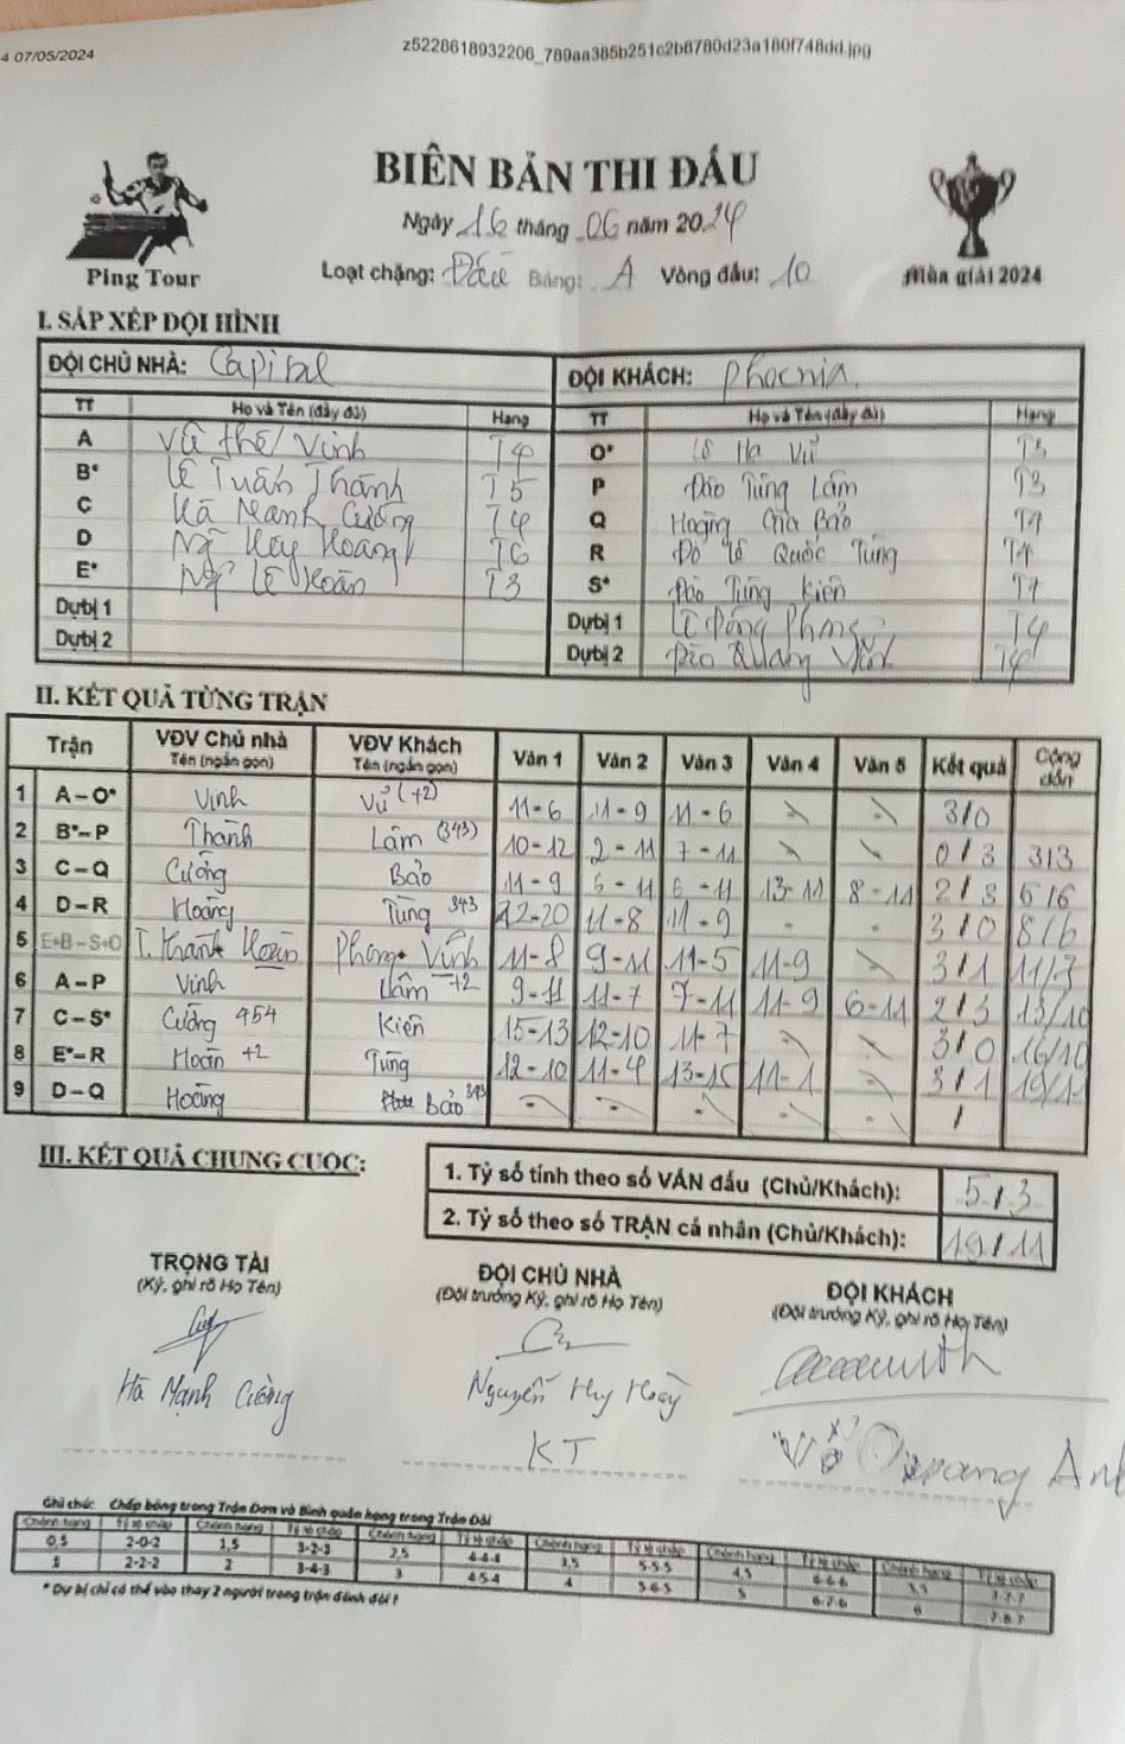 4 07/05/2024
z5228618932206_789aa385b251c2b8780d23a180f748dd.jpg
BIÊN BẢN THI ĐẤU
Ngày 16 tháng 06 năm 2024
Ping Tour
Loạt chặng: Đấu Bảng: A Vòng đấu: 10
Mùa giải 2024
I. SẮP XẾP ĐỘI HÌNH
ĐỘI CHỦ NHÀ: Capital
ĐỘI KHÁCH: Phoenix
TT Họ và Tên (đầy đủ) Hạng TT Họ và Tên (đầy đủ) Hạng
A Vũ Thế Vinh T4 O* Lê Hạ Vũ T3
B* Lê Tuấn Thành T5 P Đào Tùng Lâm T3
C Hà Mạnh Cường T4 Q Hoàng Gia Bảo T4
D Ng Huy Hoàng T6 R Đỗ Lê Quốc Tùng T4
E* Ng Lê Hoàn T3 S* Đào Tùng Kiên
Dự bị 1 Dự bị 1 Lê Đông Phong T4
Dự bị 2 Dự bị 2 Đào Quang Vinh T4
II. KẾT QUẢ TỪNG TRẬN
Trận VĐV Chủ nhà VĐV Khách Ván 1 Ván 2 Ván 3 Ván 4 Ván 5 Kết quả Cộng dồn
Tên (ngắn gọn) Tên (ngắn gọn)
1 A – O* Vinh Vũ (+2) 11-6 11-9 11-6 3/0
2 B* – P Thành Lâm (343) 10-12 2-11 7-11 0/3 3/3
3 C – Q Cường Bảo 11-9 6-11 13-11 8-11 2/3 5/6
4 D – R Hoàng Tùng 343 22-20 11-8 11-9 - - 3/0 8/6
5 E+B – S+O T. Thành Hoàn Phong + Vinh 11-8 9-11 11-5 11-9 3/1 11/7
6 A – P Vinh Lâm +2 9-11 11-7 7-11 11-9 6-11 2/3 13/10
7 C – S* Cường 454 Kiên 15-13 12-10 11-7 3/0 16/10
8 E* – R Hoàn +2 Tùng 12-10 11-4 13-15 11-1 3/1 19/11
9 D – Q Hoàng Bảo 343 - - - - - /
III. KẾT QUẢ CHUNG CUỘC:
1. Tỷ số tính theo số VÁN đấu (Chủ/Khách): 5/3
2. Tỷ số theo số TRẬN cá nhân (Chủ/Khách): 19/11
TRỌNG TÀI
(Ký, ghi rõ Họ Tên)
ĐỘI CHỦ NHÀ
(Đội trưởng Ký, ghi rõ Họ Tên)
ĐỘI KHÁCH
(Đội trưởng Ký, ghi rõ Họ Tên)
Hà Mạnh Cường
Nguyễn Huy Hoàng
KT
Anh
Ghi chú: Chấp bóng trong Trận Đơn và Bình quân hạng trong Trận Đôi
Chênh hạng Tỷ số chấp Chênh hạng Tỷ số chấp Chênh hạng Tỷ số chấp Chênh hạng Tỷ số chấp Chênh hạng Tỷ số chấp Chênh hạng Tỷ số chấp
0,5 2-0-2 1,5 3-2-3 2,5 4-4-4 3,5 5-5-5 4,5 6-6-6 5,5 7-7-7
1 2-2-2 2 3-4-3 3 4-5-4 4 5-6-5 5 6-7-6 6 7-8-7
* Dự bị chỉ có thể vào thay 2 người trong trận đánh đôi !